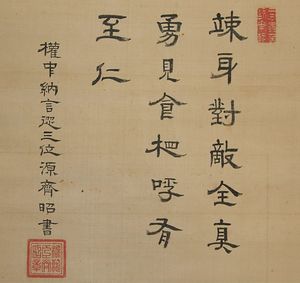 竦身對敵全真
勇見食相呼有
至仁
權中納言從三位源齊昭書